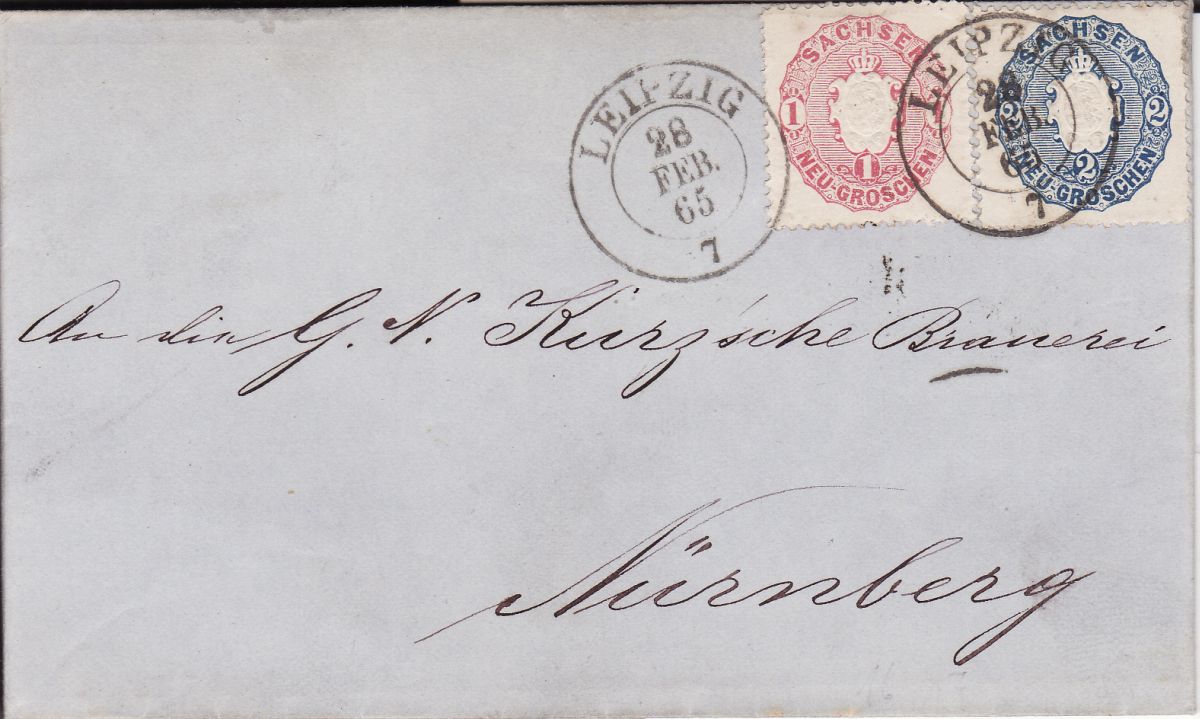 LEIPZIG
28
FEB.
65
7
SACHSEN
1 1
1
NEU-GROSCHEN
SACHSEN
2 2
2
NEU-GROSCHEN
LEIPZIG
28
FEB.
65
7
An die G. N. Kurz'sche Brauerei
Nürnberg